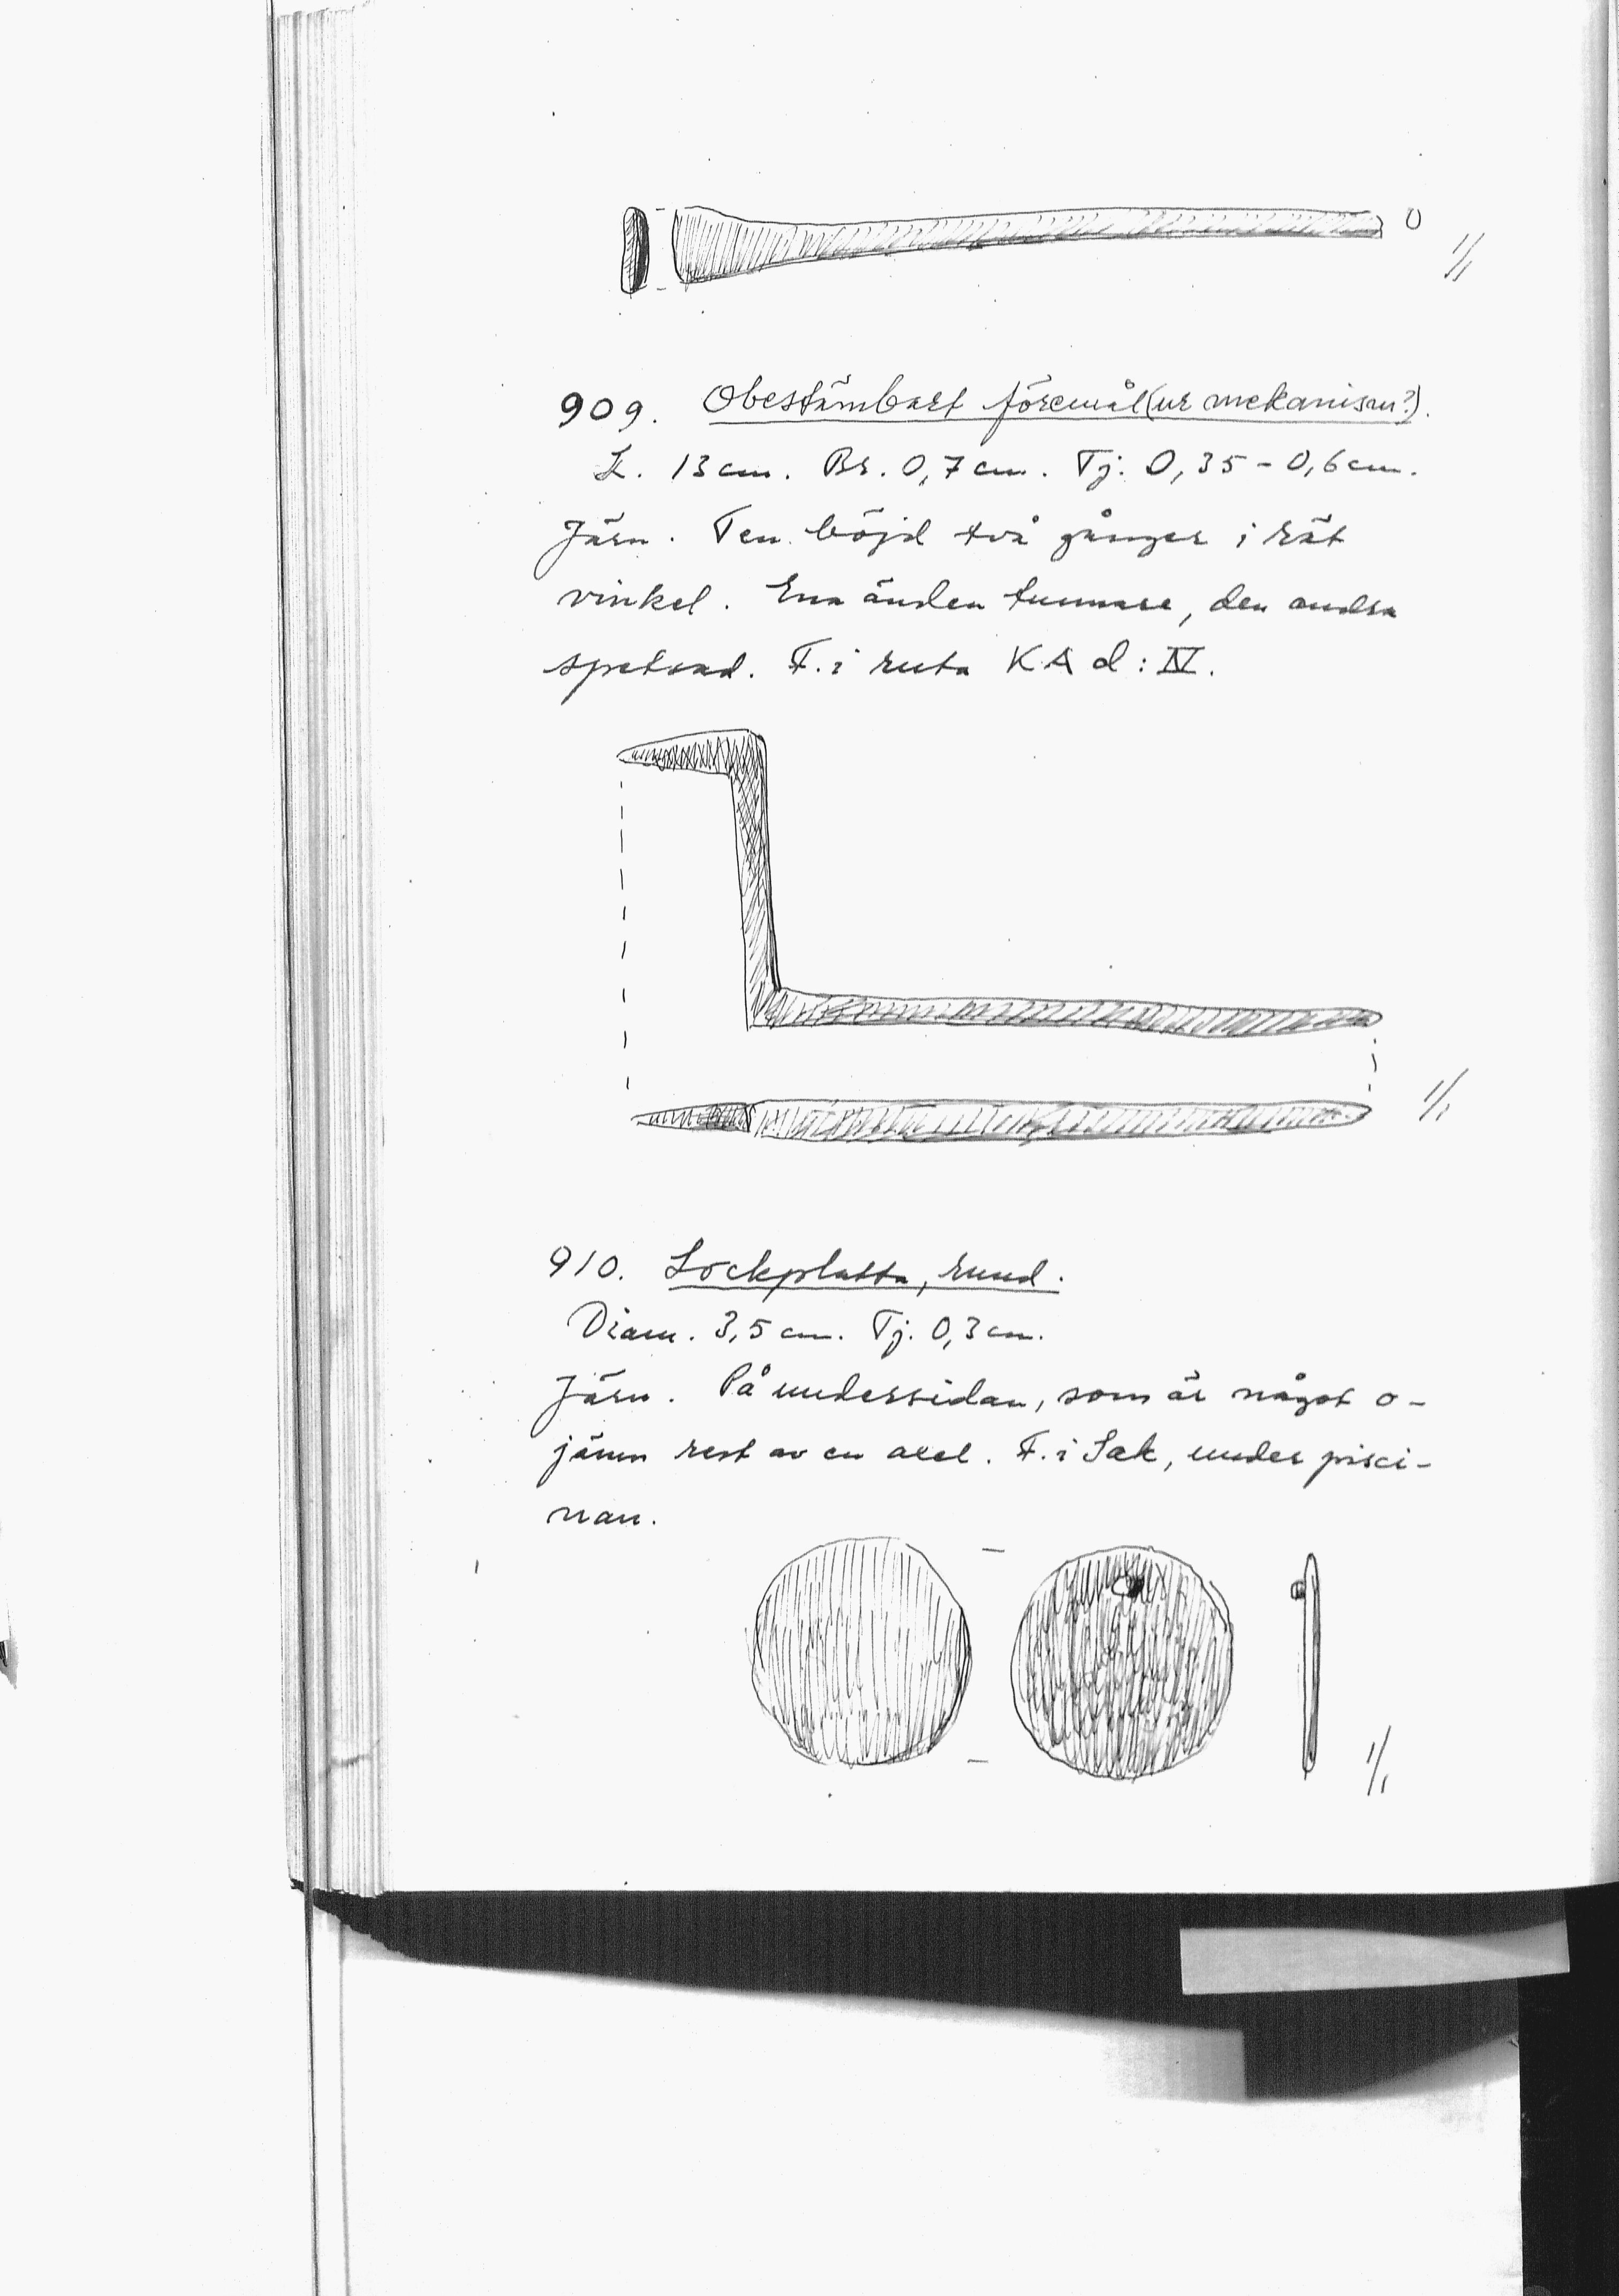 1/1
909. Obestämbart föremål (ur mekanism?).
L. 13 cm. Br. 0,7 cm. Tj. 0,35 - 0,6 cm.
Järn. Ten böjd två gånger i rät
vinkel. Ena änden tunnare, den andra
spetsad. F. i ruta KA d: IV.
1/1
910. Lockplatta, rund.
Diam. 3,5 cm. Tj. 0,3 cm.
Järn. På undersidan, som är något o-
jämn rest av en axel. F. i Sak, under pisci-
nan.
1/1